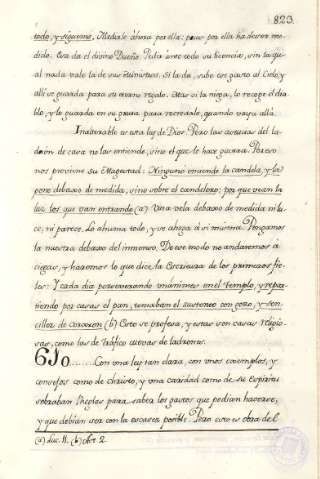 823.
todo, y sigueme. Medirle ahora por ella: pues por ella ha de ser medido. Esta da el divino Dueño. Pida ante todo su licencia, sin la qual
al nada vale la de sus Ministros. Si la da, sube ese gasto al Cielo, y
alli se guarda para su eterno regalo. Mas si la niega, lo recoge el diablo, y la guarda en su para recrearle, quando vaya allá.
Inalterable es esta ley de Dios. Pero las costuras del ladrón de casa no las entiende, sino el que le hace guerra. Por eso
nos previene su Magestad: Ninguno enciende la candela, y la
pone debaxo de medida, sino sobre el candelero: por que vean la
luz los que van entrando (a) Una vela debaxo de medida ni luce, ni parece. Lo ahuma todo, y se ahoga a si misma. Pongamos
la nuestra debaxo del inmenso. De ese modo no andaremos á
ciegas, y haremos lo que dice la Escritura de los primeros fieles: Y cada dia perseverando unanimes en el templo, y repartiendo por casas el pan, tomaban el sustento con gozo, y sencillez de corazon (b) Esto se profesa, y estas son casas religiosas, como las de tráfico cuevas de ladrones.
610...... Con una ley tan clara, con unos exemplos, y
consejos como de Christo, y una caridad como de su Espiritu
sobraban Reglas para saber los gastos que podian hacerse,
y que debian ser con la escasez posible. Pero esto es obra del
(a) Luc. 11. (b) Act. 2.